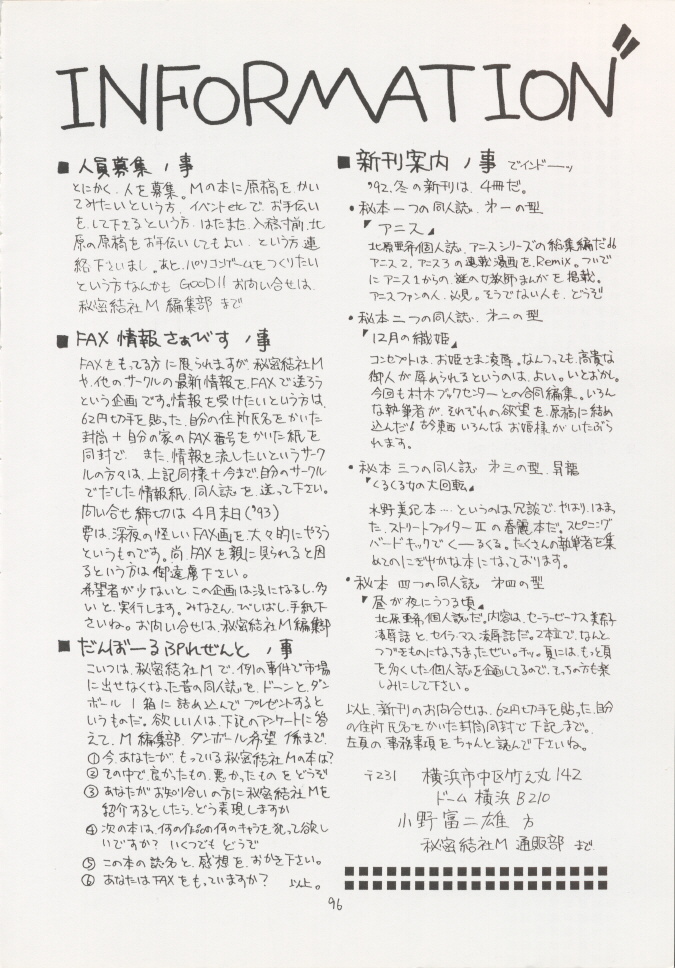 INFORMATION
■人員募集ノ事
とにかく、人を募集。Mの本に原稿を かい
てみたいという方、イベントetcで、お手伝い
を、して下さるという方、はたまた、入稿寸前、北
原の原稿を お手伝いしてもよい、という方 連
絡下さいまし。あと、パソコンゲームをつくりたい
という方なんかも GOOD!! お問い合せは、
秘密結社M 編集部 まで
■FAX 情報さぁびすノ事
FAXをもってる方に限られますが、秘密結社M
や、他のサークルの最新情報を、FAXで送ろう
という企画です。情報を受けたいという方は、
62円切手を貼った、自分の住所氏名をかいた
封筒+自分の家のFAX番号をかいた紙を
同封で、また、情報を流したいというサーク
ルの方々は、上記同様+今まで、自分のサークル
でだした情報紙、同人誌を、送って下さい。
問い合せ 締切は 4月末日('93)
要は、深夜の怪しいFAX画を、大々的にやろう
というものです。尚、FAXを親に見られると困
るという方は 御遠慮下さい。
希望者が少ないと、この企画は没になるし、多
いと、実行します。みなさん、びしばし、手紙下
さいね。お問い合せは、秘密結社M編集部
■だんぼーるぷれぜんと ノ事
こいつは、秘密結社Mで、例の事件で市場
に出せなくなった昔の同人誌を、ドーンと、ダン
ボール 1箱 に詰め込んで プレゼントすると
いうものだ。欲しい人は、下記のアンケートに答
えて、M編集部、ダンボール希望 係まで、
①今、あなたが、もっている秘密結社Mの本は?
②その中で、良かったもの、悪かったもの を どうぞ
③あなたがお知り合いの方に秘密結社Mを
紹介するとしたら、どう表現しますか
④次の本は、何の作品の何のキャラを犯って欲し
いですか? いくつでも どうぞ
⑤この本の誌名と、感想を、おかき下さい。
⑥あなたはFAXをもっていますか? 以上。
■新刊案内ノ事 でインドーーッ
'92.冬の新刊は、4冊だ。
・秘本一つの同人誌、オ一の型
『アニス』
北原亜希個人誌、アニスシリーズの総集編だ!!
アニス2、アニス3の連載漫画を、Remix。ついで
にアニス1からの、謎の女教師まんがを掲載。
アニスファンの人、必見。そうでない人も、どうぞ
・秘本二つの同人誌、オ二の型
『12月の織姫』
コンセプトは、お姫さま凌辱。なんつっても、高貴な
御人が 辱められるというのは、よい。いとおかし。
今回も村木ブックセンターとの合同編集。いろん
な執筆者が、それぞれの欲望を、原稿に結め
込んだ!! 古今東西いろんな お姫様がいたぶら
れます。
・秘本 三つの同人誌 オ三の型、昇龍
『くるくる女の大回転』
水野美紀本‥‥というのは、冗談で、やはり、はまっ
た、ストリートファイターⅡの春麗本だ。スピニング
バードキックで くーるくる。たくさんの執筆者を集
めてのにぎやかな本になっております。
・秘本 四つの同人誌 オ四の型
『昼が夜にうつる頃』
北原亜希、個人誌だ。内容は、セーラービーナス 美奈子
凌辱話と セイラ・マス 凌辱話だ。2本立で、なんと
つづきものになっちまった、ぜい。チッ。夏には、もっと頁
を多くした個人誌を企画してるので、そっちの方も楽
しみにして下さい。
以上、新刊のお問合せは、62円切手を貼った、自分
の住所氏名をかいた封筒同封で下記まで。
左頁の事務事項をちゃんと読んで下さいね。
〒231 横浜市中区竹之丸142
ドーム横浜B210
小野富二雄 方
秘密結社M 通販部 まで
96